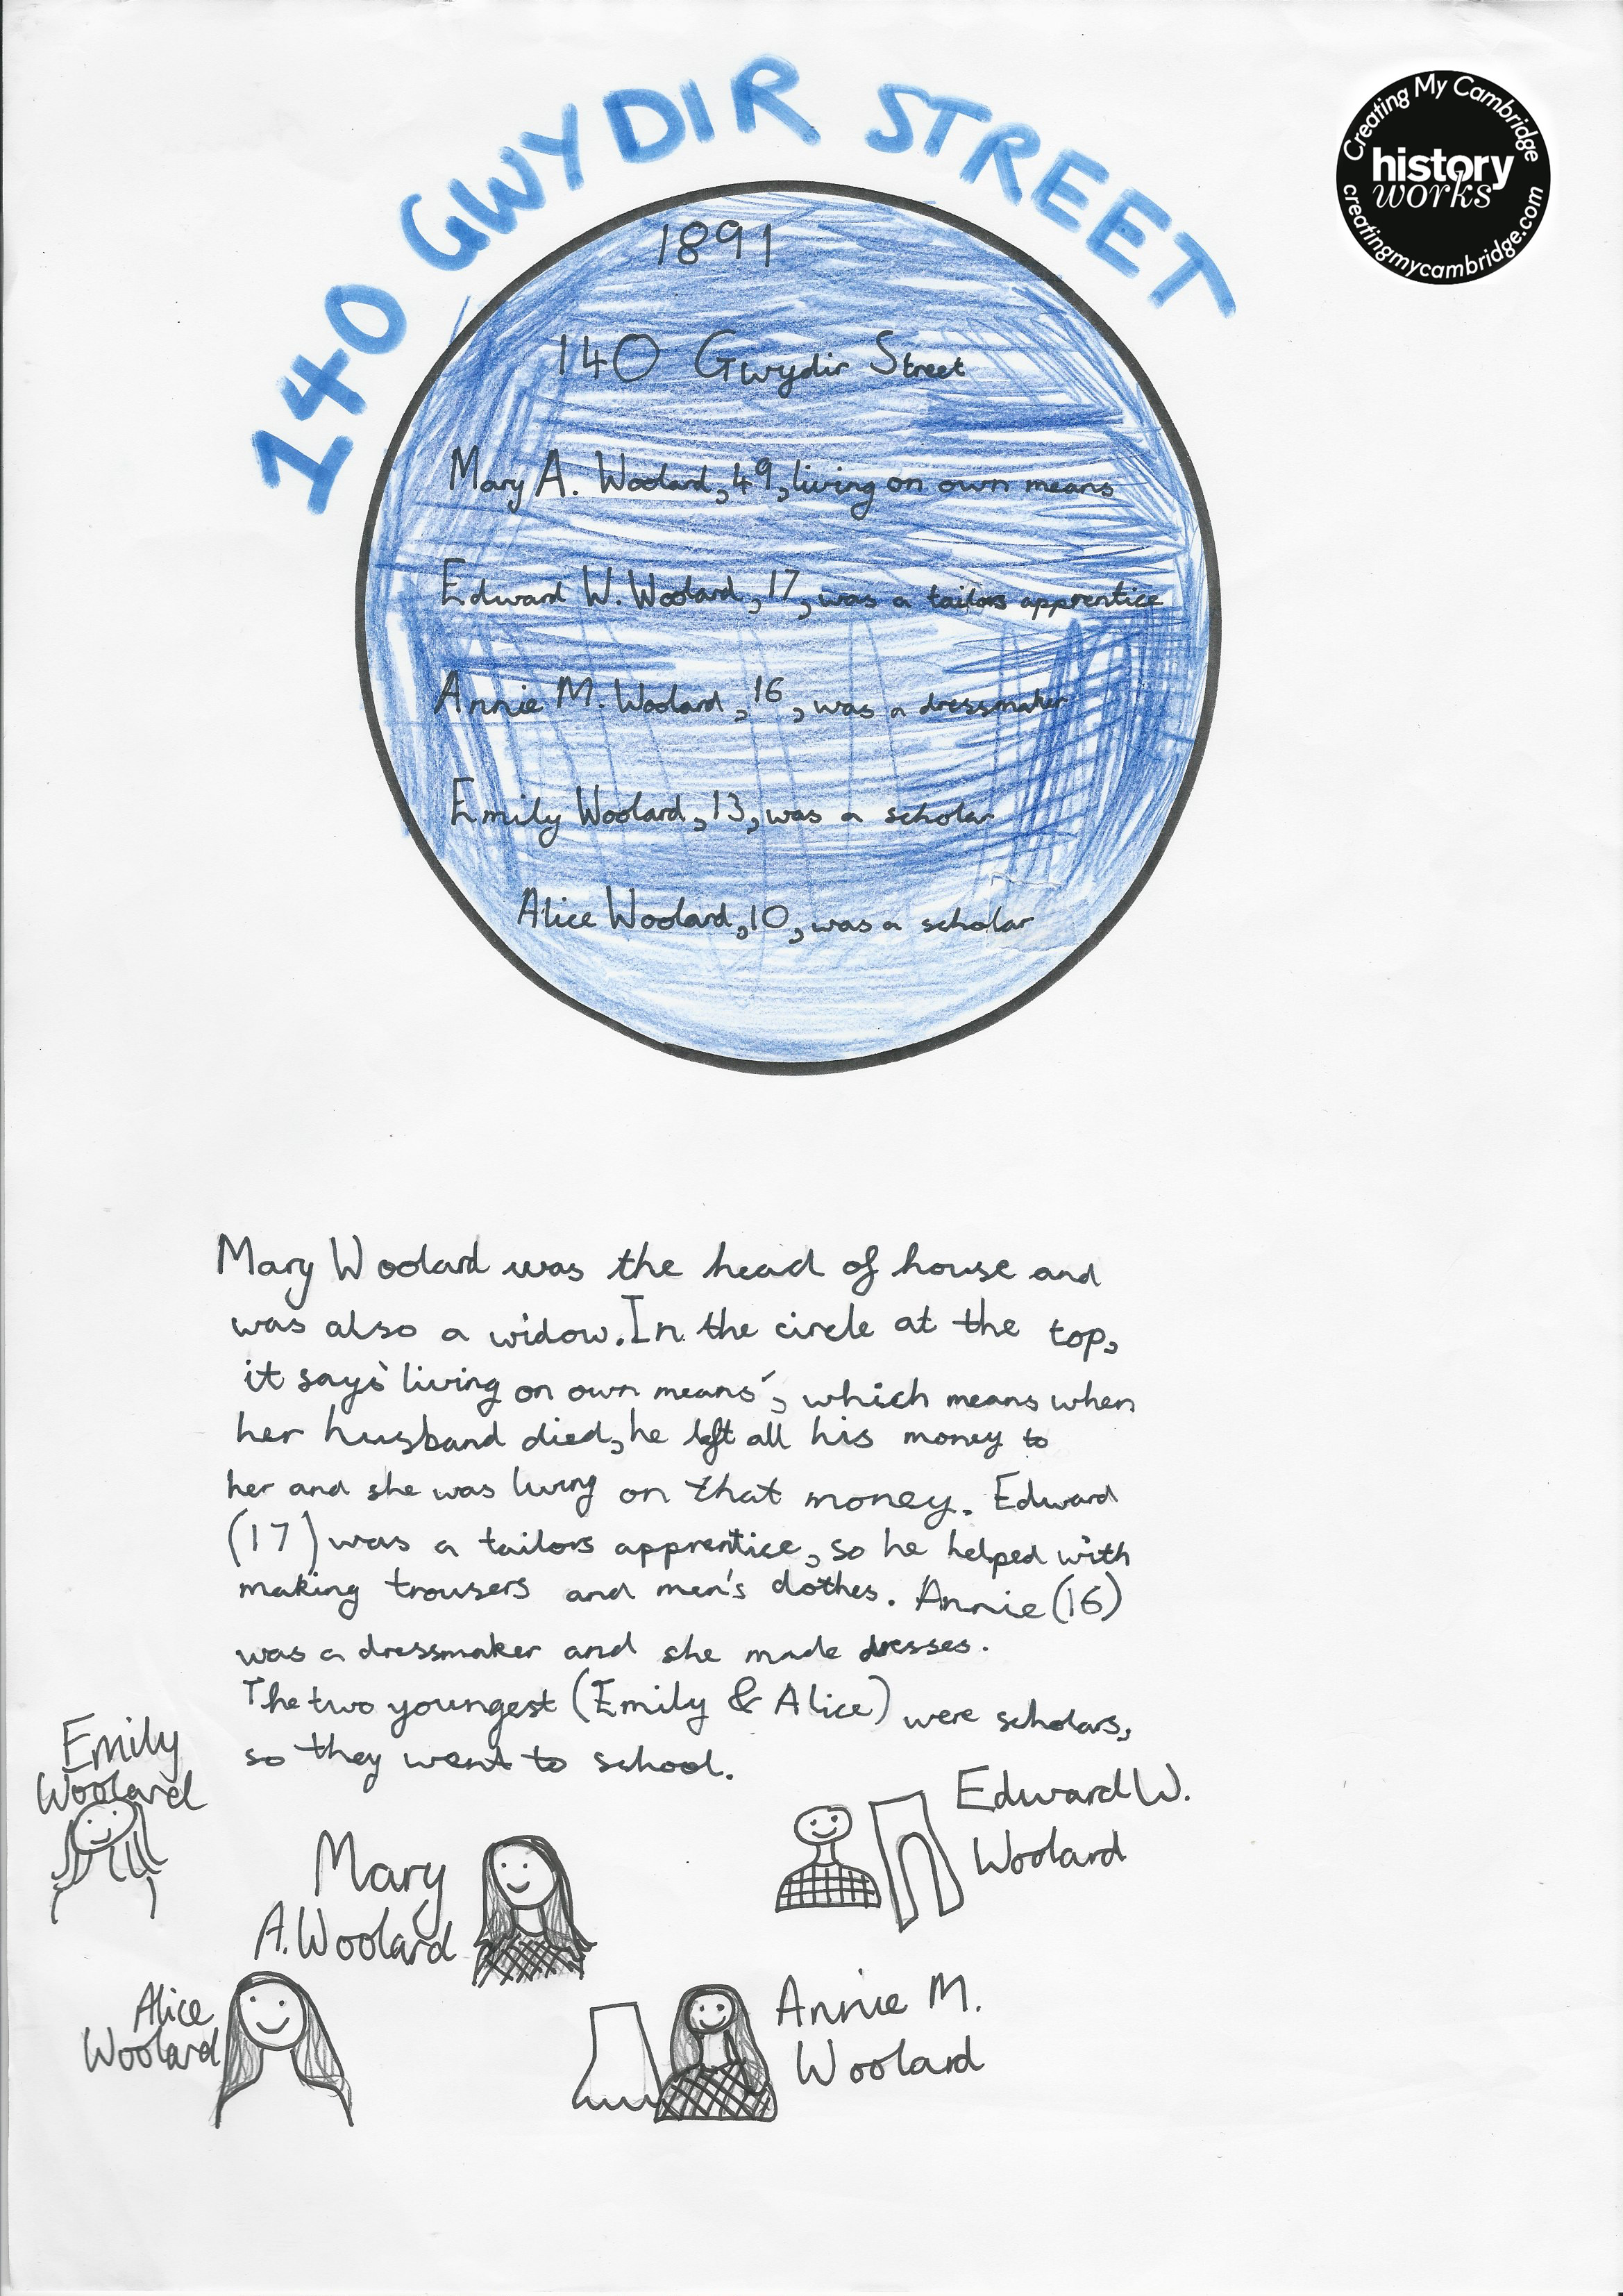 140 GWYDIR STREET
Creating My Cambridge
history
works
creatingmycambridge.com
1891
140 Gwydir Street
Mary A. Woolard, 49, living on own means
Edward W. Woolard, 17, was a tailors apprentice
Annie M. Woolard, 16, was a dressmaker
Emily Woolard, 13, was a scholar
Alice Woolard, 10, was a scholar
Mary Woolard was the head of house and
was also a widow. In the circle at the top,
it says 'living on own means', which means when
her husband died, he left all his money to
her and she was living on that money. Edward
(17) was a tailors apprentice, so he helped with
making trousers and men's clothes. Annie (16)
was a dressmaker and she made dresses.
The two youngest (Emily & Alice) were scholars,
so they went to school.
Emily
Woolard
Edward W.
Woolard
Mary
A. Woolard
Alice
Woolard
Annie M.
Woolard